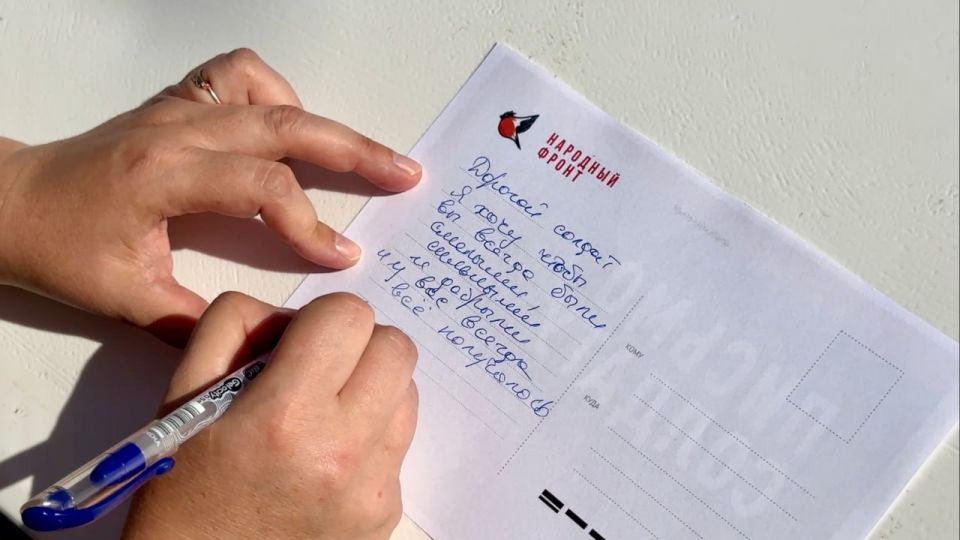 НАРОДНЫЙ
ФРОНТ
Дорогой солдат
Я хочу чтобы
вы всегда были
смелыми,
сильными
и добрыми
и у вас всегда
всё получалось
КОМУ
КУДА
ПИСЬМО
СОЛДАТУ